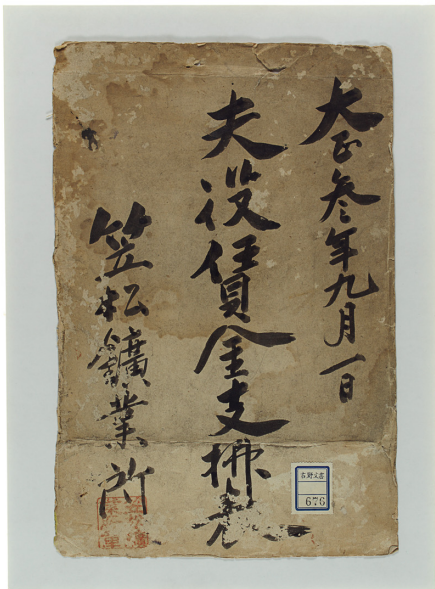 大正参年九月一日
夫役賃金支拂表
笠松鑛業所
古野文書
676